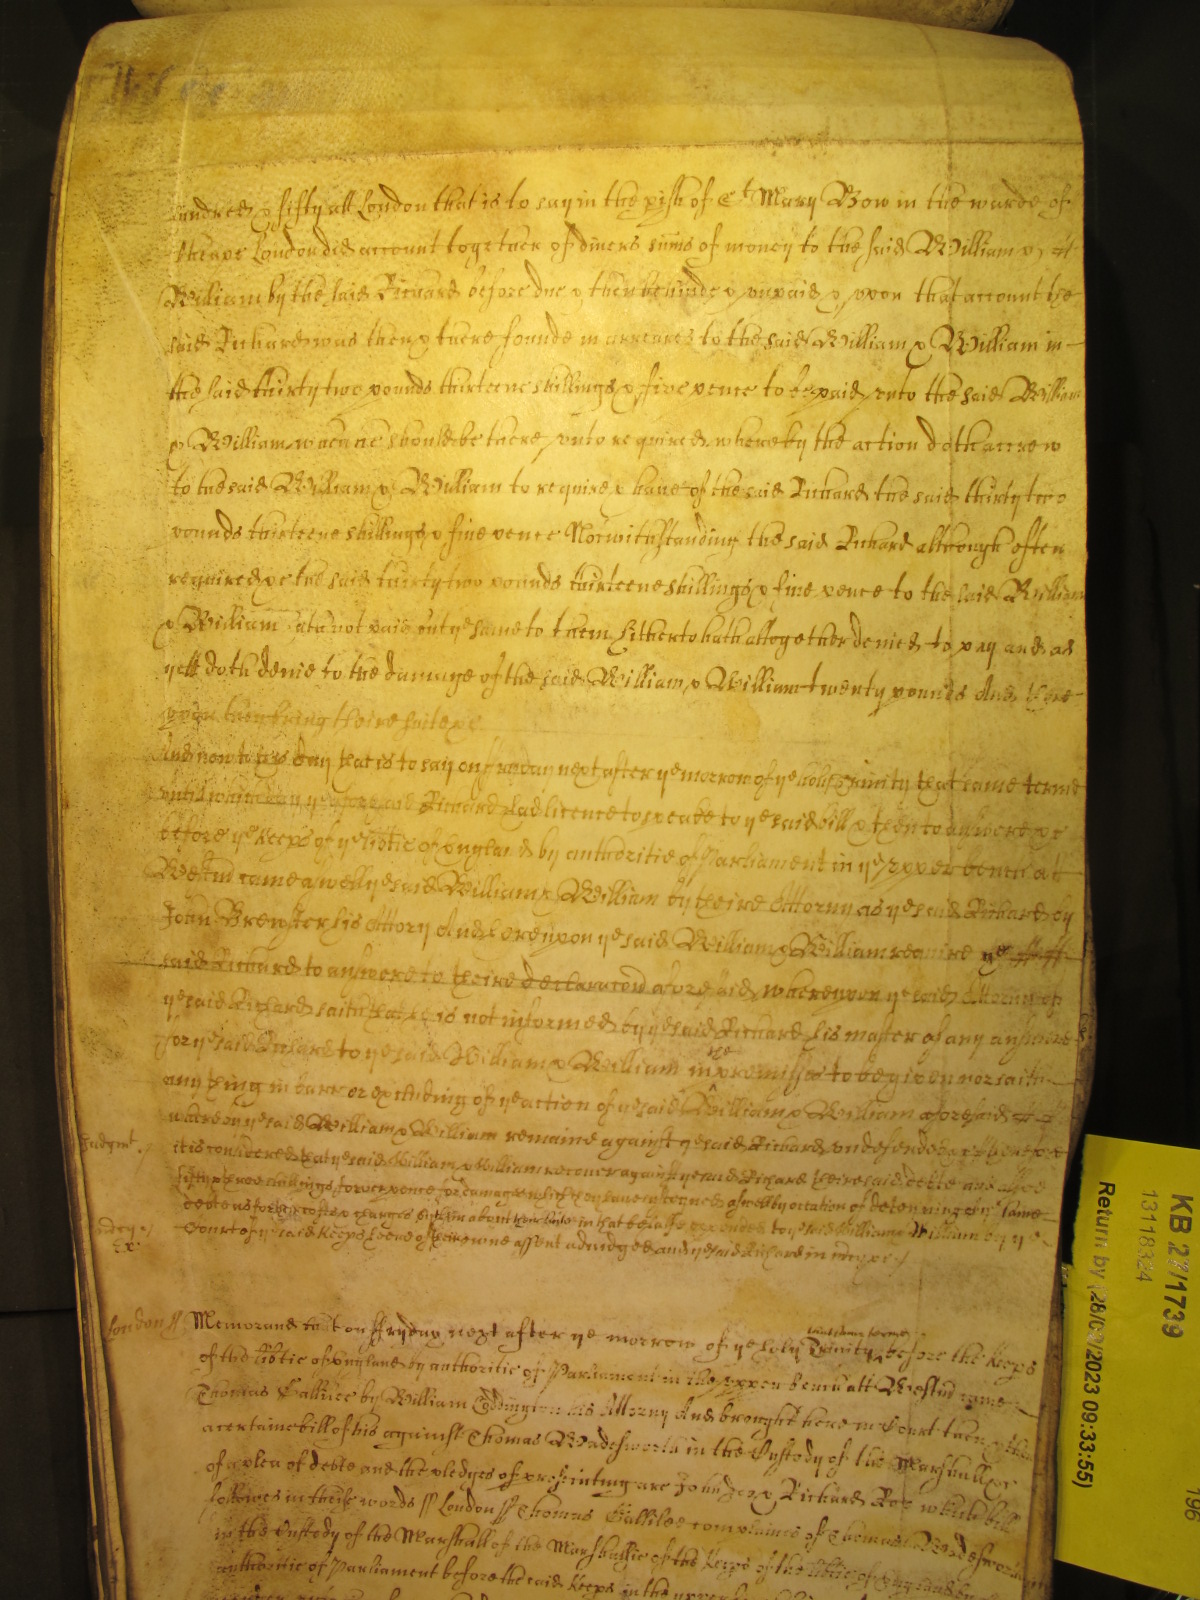 hundred & fifty att London that is to say in the pish of St Mary Bow in the warde of
Cheape London did account together of divers sums of money to the said William &
William by the said Richard before due & then behinde & unpaid & upon that account the
said Richard was then & there founde in arreares to the said William & William in
the said thirty two pounds thirteene shillings & five pence to be paid unto the said William
& William when he should be there unto required whereby the action doth accrew
to the said William & William to require & have of the said Richard the said thirty two
pounds thirteene shillings & five pence Notwithstanding the said Richard although often
required &c the said thirty two pounds thirteene shillings & five pence to the said William
& William hath not paid but ye same to them hitherto hath altogether denied to pay and as
yett doth denie to the damage of the said William & William twenty pounds And there
upon they bring theire suite &c
And now to this day that is to say on fryday next after ye morrow of ye holy Trinity that same terme
untill which day ye aforesaid Richard had licence to speake to ye said bill & then to answere &c
before ye Keeps of ye libtie of England by authoritie of Parliament in ye upper bench att
Westm came aswell ye said William & William by theire Attorny as ye said Richard by
John Brewster his Attorny And hereupon ye said William & William require ye
said Richard to answere to theire declaracon aforesaid whereupon ye said Attorny of
ye said Richard saith that he is not informed by ye said Richard his master of any answere
for ye said Richard to ye said William & William in ye premisses to be given nor saith
any thing in barr or excluding of ye action of ye said William & William aforesaid
whereon ye said William & William remaine against ye said Richard undefended &c Therefore
Judgmt. it is considered that ye said William & William recover against ye said Richard theire said debte and alsoe
fifty & three shillings fower pence for damages which they have susteyned aswell by occasion of deteyning ye same
debte as for their costes & charges by them about their suite in that behalfe expended to ye said William & William by ye
Court of ye said Keeps heere of theire owne assent adiudged and ye said Richard in mcy &c
mcy
Ex
London ss Memorand that on fryday next after ye morrow of ye holy Trinity this same terme before the Keeps
of the libtie of England by authoritie of Parliament in the upper bench att Westm came
Thomas Gallilee by William Eddington his Attorny And brought here in Court then & there
a certaine bill of his against Thomas Wadesworth in the Custody of the Marshall &c
of a plea of debte and the pledges of prosecuting are John Doe & Richard Roe which bill
followes in theise words ss London ss Thomas Gallilee complaines of Thomas Wadesworth
in the Custody of the Marshall of the Marshallsie of the Keeps of the libtie of England by
authoritie of Parliament before the said Keeps in the upper bench
KB 27/1739
13118324
Return by (28/03/2023 09:33:55)
196